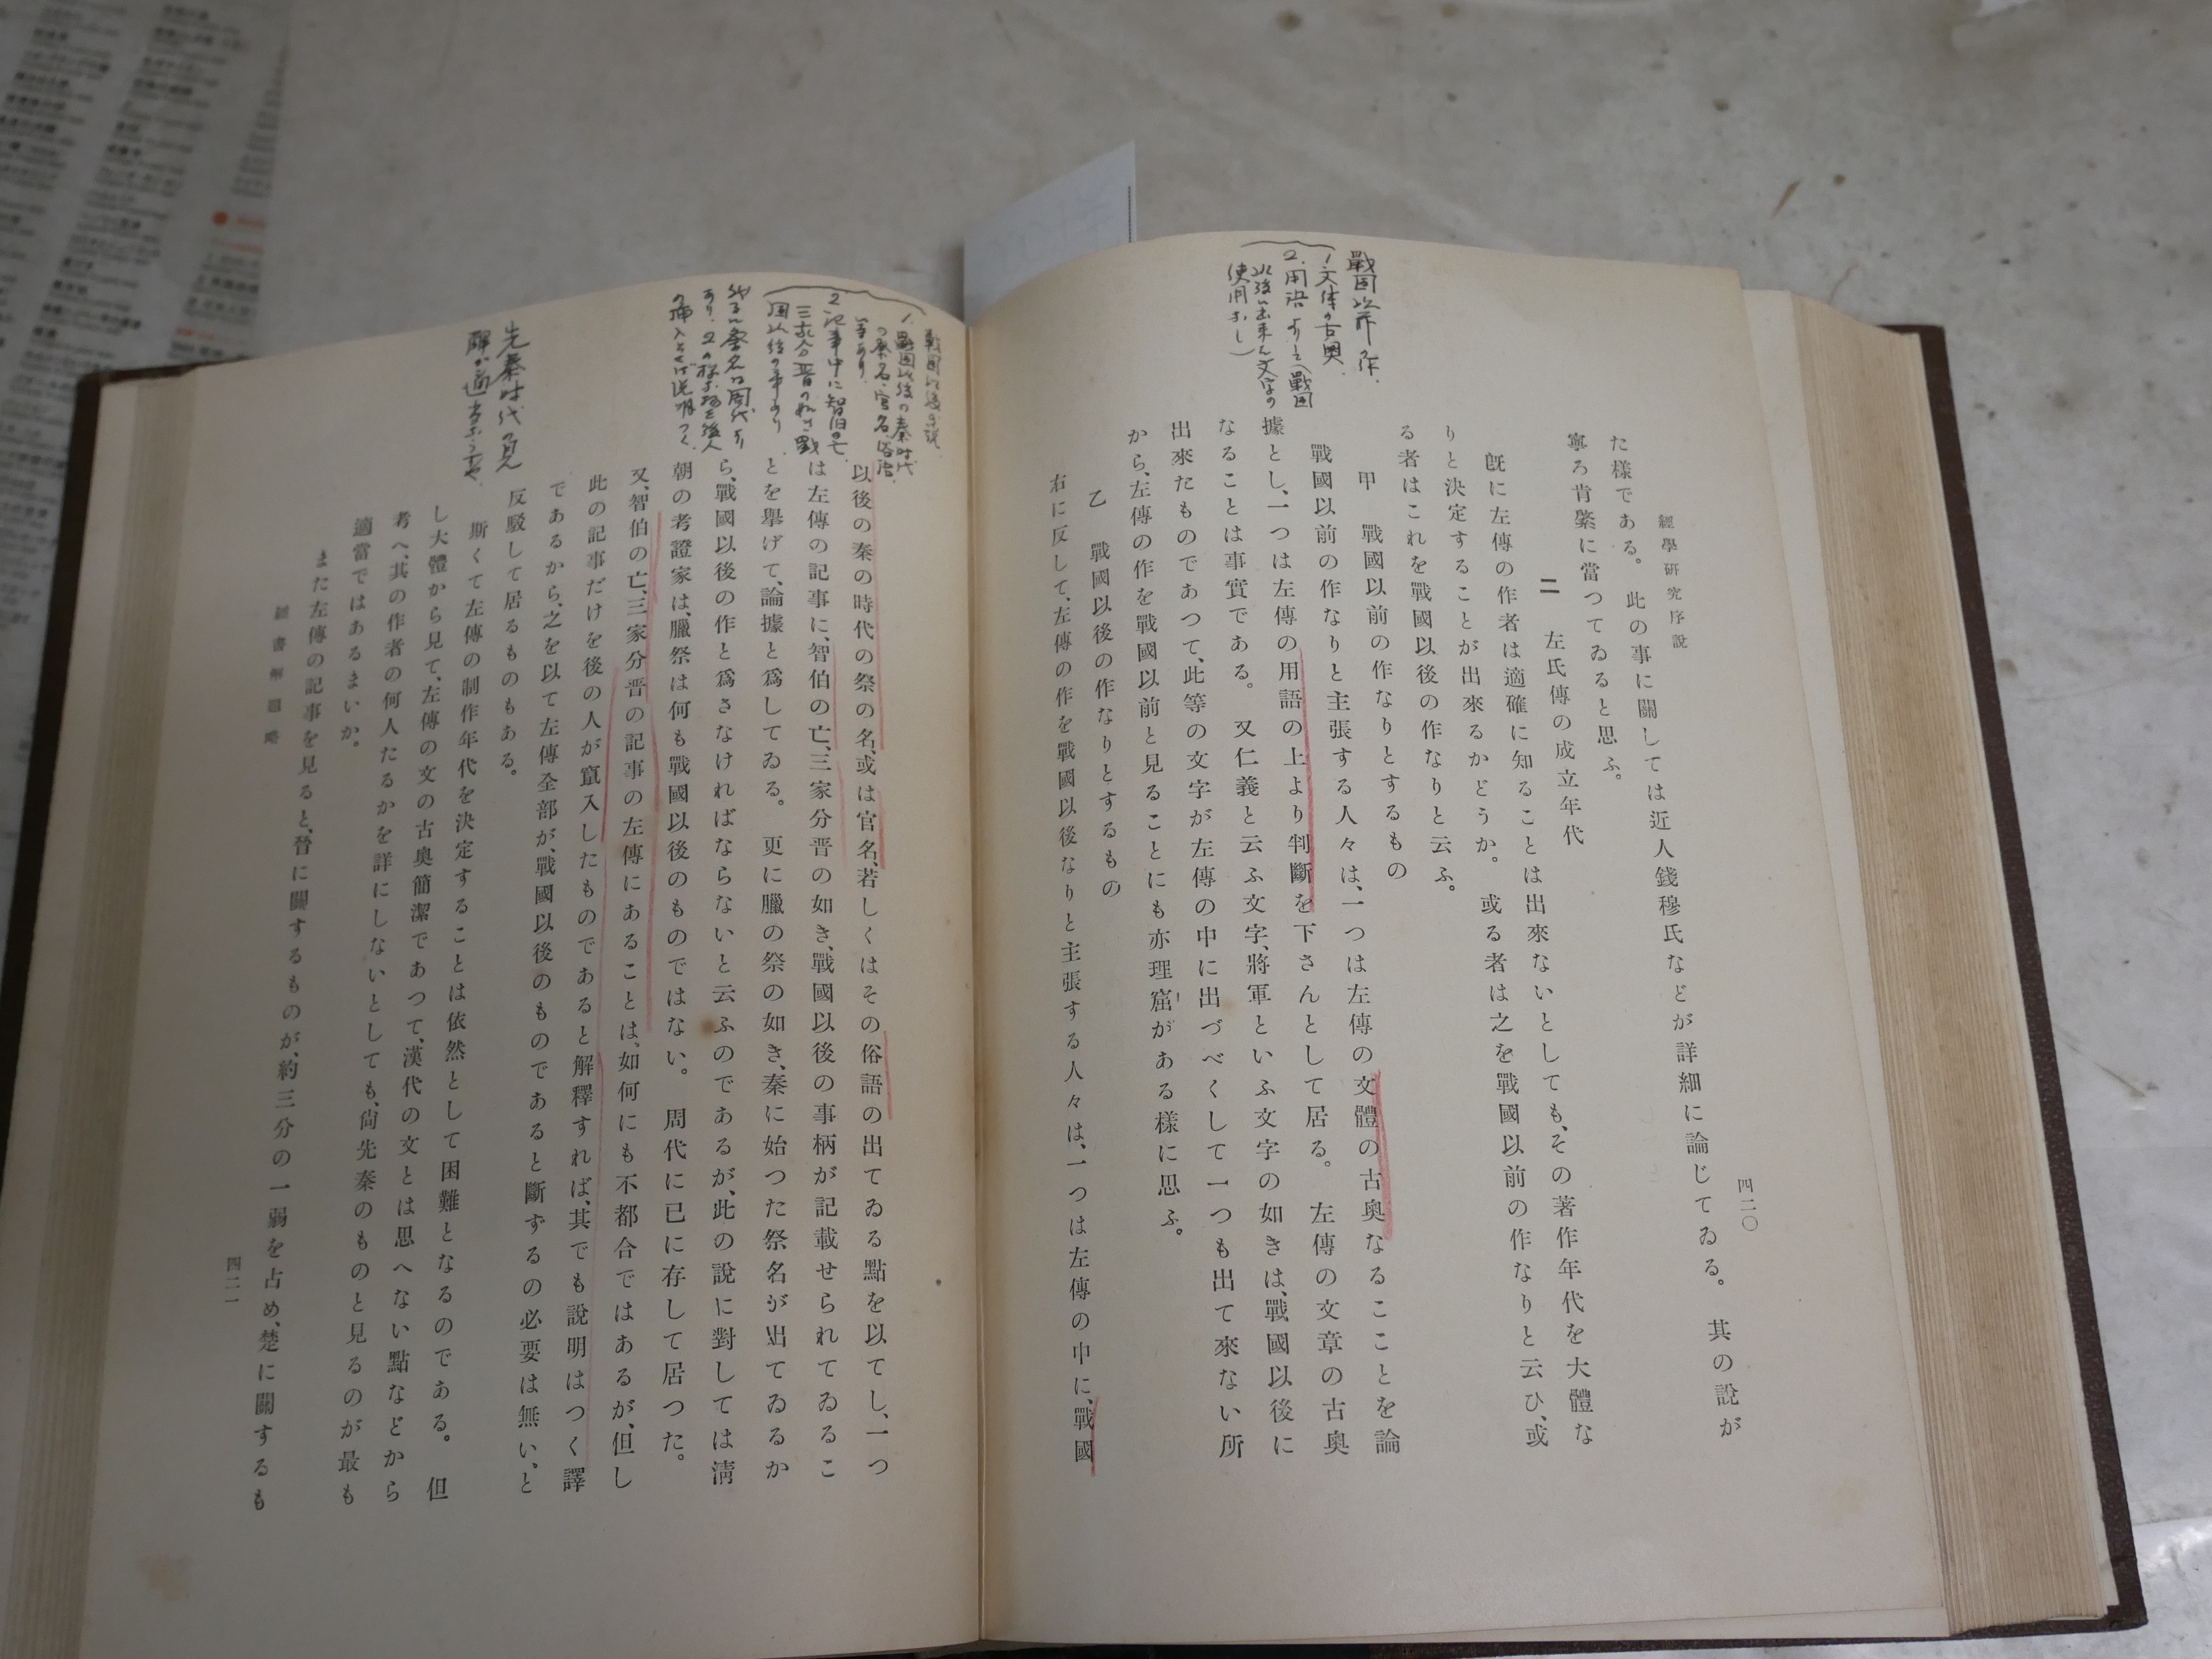 經學研究序說
四二〇
た樣である。此の事に關しては近人錢穆氏などが詳細に論じてゐる。其の說が
寧ろ肯綮に當つてゐると思ふ。
二　左氏傳の成立年代
旣に左傳の作者は適確に知ることは出來ないとしても、その著作年代を大體な
りと決定することが出來るかどうか。或る者は之を戰國以前の作なりと云ひ、或
る者はこれを戰國以後の作なりと云ふ。
甲　戰國以前の作なりとするもの
戰國以前の作なりと主張する人々は、一つは左傳の文體の古奧なることを論
據とし、一つは左傳の用語の上より判斷を下さんとして居る。左傳の文章の古奧
なることは事實である。又仁義と云ふ文字、將軍といふ文字の如きは、戰國以後に
出來たものであつて、此等の文字が左傳の中に出づべくして一つも出て來ない所
から、左傳の作を戰國以前と見ることにも亦理窟がある樣に思ふ。
乙　戰國以後の作なりとするもの
右に反して、左傳の作を戰國以後なりと主張する人々は、一つは左傳の中に、戰國
戰国以前作.
1.文体の古奧
2.用語よりと(戰国
以後に出来た文字の
使用なし)
以後の秦の時代の祭の名、或は官名、若しくはその俗語の出てゐる點を以てし、一つ
は左傳の記事に、智伯の亡、三家分晋の如き、戰國以後の事柄が記載せられてゐるこ
とを擧げて、論據と爲してゐる。更に臘の祭の如き、秦に始つた祭名が出てゐるか
ら、戰國以後の作と爲さなければならないと云ふのであるが、此の說に對しては淸
朝の考證家は、臘祭は何も戰國以後のものではない。周代に已に存して居つた。
又、智伯の亡、三家分晋の記事の左傳にあることは、如何にも不都合ではあるが、但し
此の記事だけを後の人が竄入したものであると解釋すれば、其でも說明はつく譯
であるから、之を以て左傳全部が、戰國以後のものであると斷ずるの必要は無い、と
反駁して居るものもある。
斯くて左傳の制作年代を決定することは依然として困難となるのである。但
し大體から見て、左傳の文の古奧簡潔であつて、漢代の文とは思へない點などから
考へ、其の作者の何人たるかを詳にしないとしても、尙先秦のものと見るのが最も
適當ではあるまいか。
また左傳の記事を見ると、晉に關するものが、約三分の一弱を占め、楚に關するも
經書解題略
四二一
戰国以後の說.
1.戰国以後の秦時代
の祭名、官名、俗語.
等あり.
2.記事中に智伯の亡.
三家分晋の如き戰
国以後の事あり
先秦時代の見
解が適当